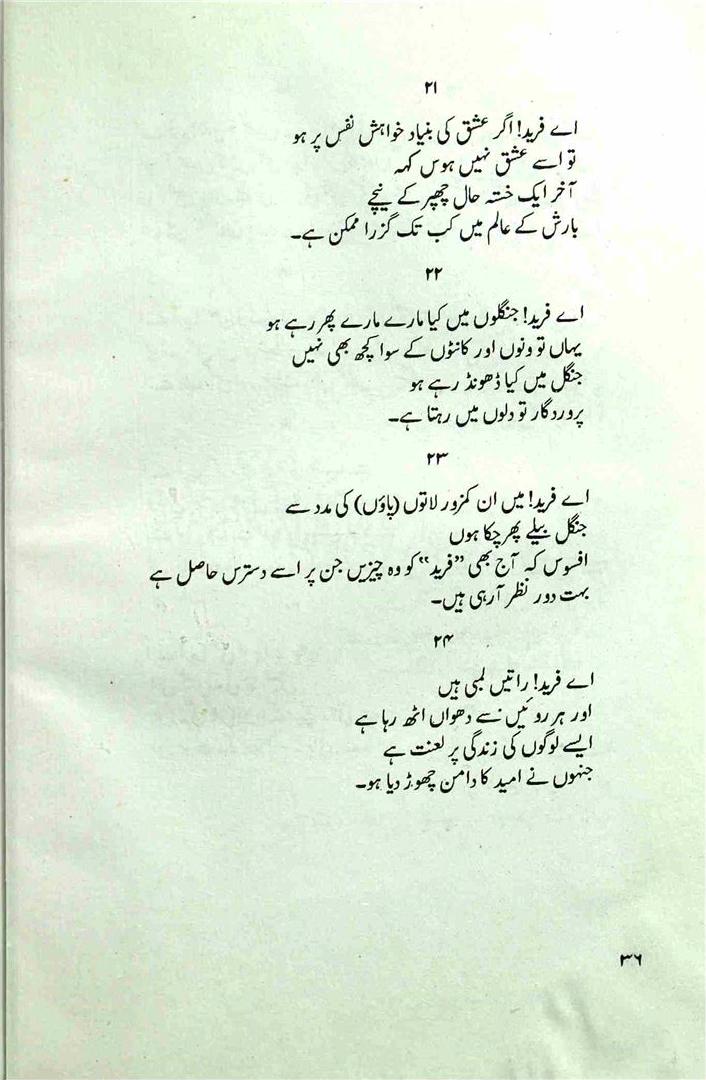 ۲۱
اے فرید! اگر عشق کی بنیاد خواہش نفس پر ہو
تو اسے عشق نہیں ہوس کہہ
آخر ایک خستہ حال چھپر کے نیچے
بارش کے عالم میں کب تک گزرا ممکن ہے۔
۲۲
اے فرید! جنگلوں میں کیا مارے مارے پھر رہے ہو
یہاں تو ونوں اور کانٹوں کے سوا کچھ بھی نہیں
جنگل میں کیا ڈھونڈ رہے ہو
پروردگار تو دلوں میں رہتا ہے۔
۲۳
اے فرید! میں ان کمزور لاتوں (پاؤں) کی مدد سے
جنگل بیلے پھر چکا ہوں
افسوس کہ آج بھی ”فرید“ کو وہ چیزیں جن پر اسے دسترس حاصل ہے
بہت دور نظر آرہی ہیں۔
۲۴
اے فرید! راتیں لمبی ہیں
اور ہر روئیں سے دھواں اٹھ رہا ہے
ایسے لوگوں کی زندگی پر لعنت ہے
جنہوں نے امید کا دامن چھوڑ دیا ہو۔
۳۶